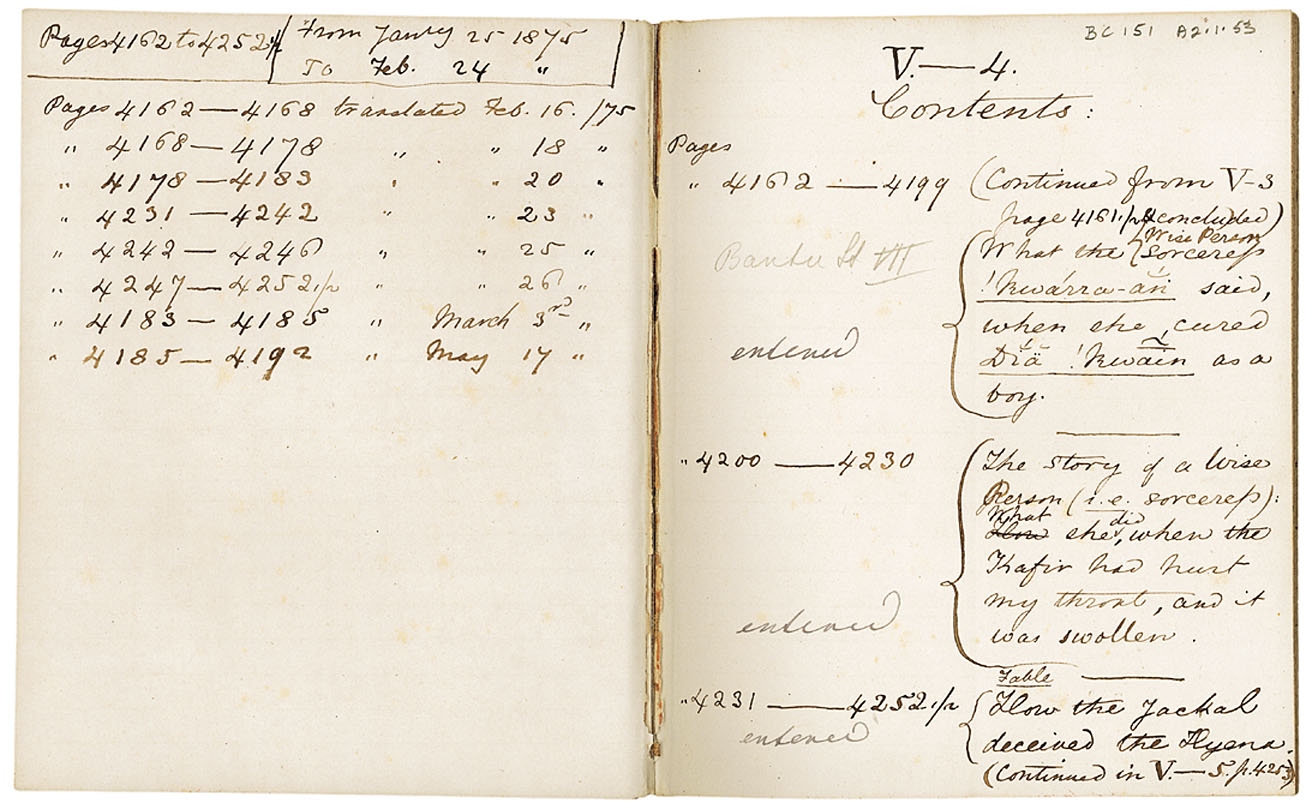 Pages 4162 to 4252 1/2
From Janry 25 1875
To Feb. 24 "
Pages 4162 — 4168 translated Feb. 16. /75
" 4168 — 4178 " " 18 "
" 4178 — 4183 " " 20 "
" 4231 — 4242 " " 23 "
" 4242 — 4246 " " 25 "
" 4247 — 4252 1/2 " " 26 "
" 4183 — 4185 " March 3rd "
" 4185 — 4192 " May 17 "
BC 151 A2.1.53
V. — 4.
Contents:
Pages
" 4162 — 4199 (Continued from V-3
page 4161 1/2 & concluded)
Wise Person
What the sorceress
!kwárra-ăn said,
when she cured
Dĭä !kwain as a
boy.
Bantu St VII
entered
" 4200 — 4230 The story of a Wise
Person (i.e. sorceress):
What did
How she, when the
Kafir had hurt
my throat, and it
was swollen.
entered
Fable
" 4231 — 4252 1/2 How the Jackal
deceived the Hyena.
(Continued in V. — 5. p. 4253)
entered